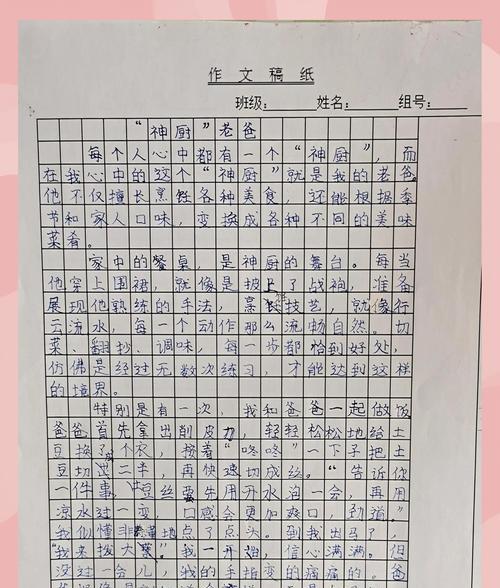 作文稿纸
班级: 姓名: 组号:
“神厨”老爸
每个人心中都有一个“神厨”，而
在我心中的这个“神厨”就是我的老爸。
他不仅擅长烹饪各种美食，还能根据季
节和家人口味，变换成各种不同的美味
菜肴。
家中的餐桌，是神厨的舞台。每当
他穿上围裙，就像是披上了战袍，准备
展现他熟练的手法，烹饪技艺，就像行
云流水，每一个动作那么流畅自然。切
菜、翻抄、调味，每一步都恰到好处，
仿佛是经过无数次练习，才能达到这样
的境界。
特别是有一次，我和爸爸一起做饭
爸爸首先拿出削皮刀，轻轻松松地给土
豆换了个衣，接着“咚咚”一下子把土
豆切成二半，再快速切成丝。“告诉你
一件事，土豆丝要先用开水泡一会，再用
凉水过一变，口感会更加爽口，劲道。”
我似懂非懂地点了点头。到我出马了，
“我来拨大菜。”我一开始，信心满满。但
没过一会儿，我的手指变的痛痛的，爸